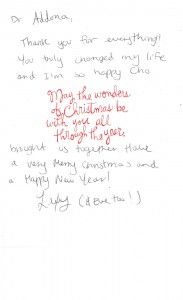 Dr Addona,
Thank you for everything!
You truly changed my life
and I'm so happy Cha
May the wonders
of Christmas be
with you all
through the year.
brought us together Have
a very Merry Christmas and
a Happy New Year!
(
!)